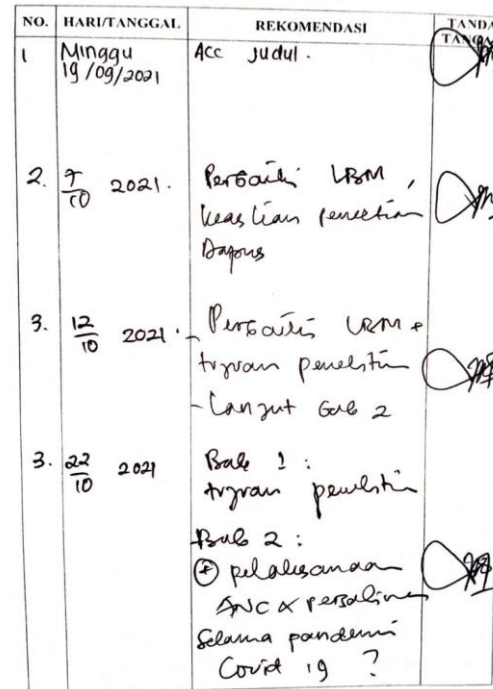 NO. HARI/TANGGAL REKOMENDASI TANDA TANGAN
1 Minggu Acc judul.
19/09/2021
2. 7/10 2021. Perbaiki LBM,
keaslian penelitian
Dapus
3. 12/10 2021. - Perbaiki LBM +
tujuan penelitian
- Lanjut bab 2
3. 22/10 2021 Bab 1 :
tujuan penelitian
Bab 2 :
+ pelaksanaan
ANC & persalinan
Selama pandemi
Covid 19 ?